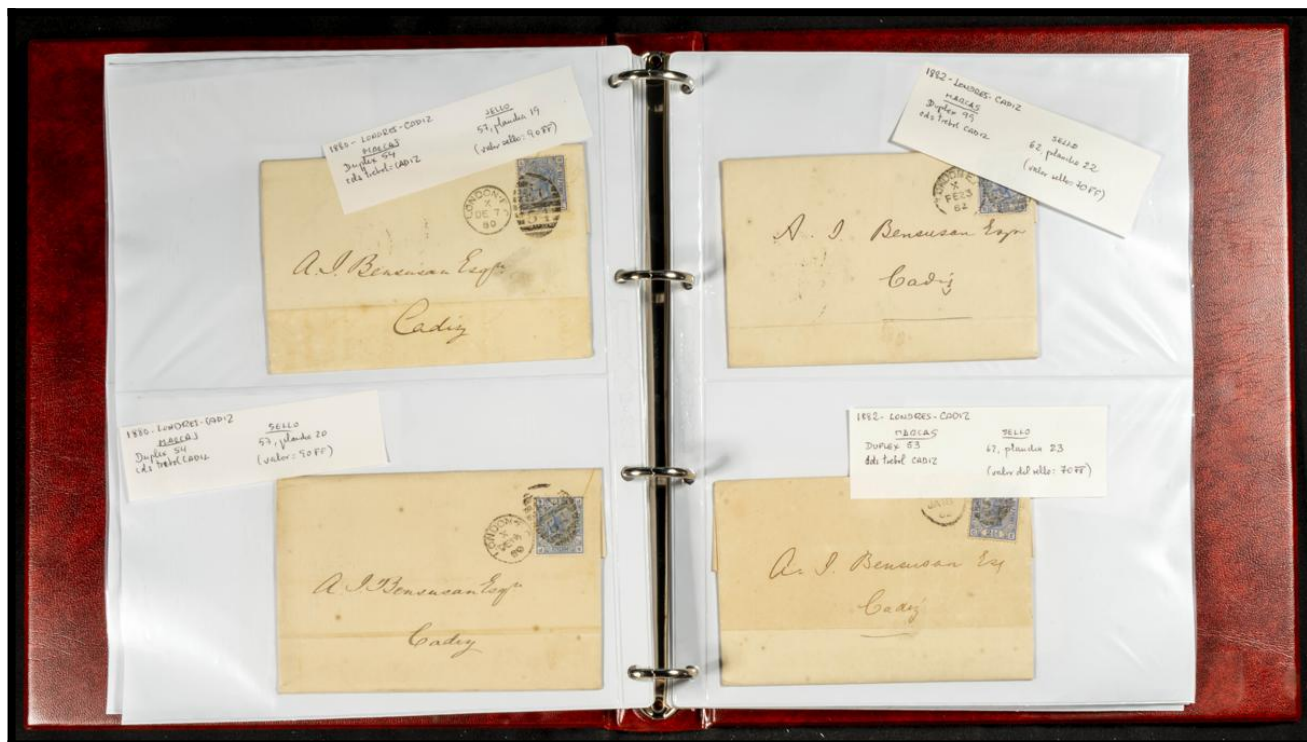 1880 - LONDRES - CADIZ
MARCAS
Duplex 54
cds trebol = CADIZ
SELLO
57, planche 19
(valor sello: 90 FF)
LONDON E.C
X
DE 7
80
A. I. Bensusan Esqr
Cadiz
1880 - LONDRES - CADIZ
MARCAS
Duplex 54
cds trebol CADIZ
SELLO
57, planche 20
(valor: 90 FF)
LONDON E.C
X
80
A. I. Bensusan Esqr
Cadiz
1882 - LONDRES - CADIZ
MARCAS
Duplex 95
cds trebol CADIZ
SELLO
62, planche 22
(valor sello: 70 FF)
LONDON E.
X
FE 23
82
A. I. Bensusan Esqr
Cadiz
1882 - LONDRES - CADIZ
MARCAS
DUPLEX 63
cds trebol CADIZ
SELLO
62, planche 23
(valor del sello: 70 FF)
A. I. Bensusan Esq
Cadiz